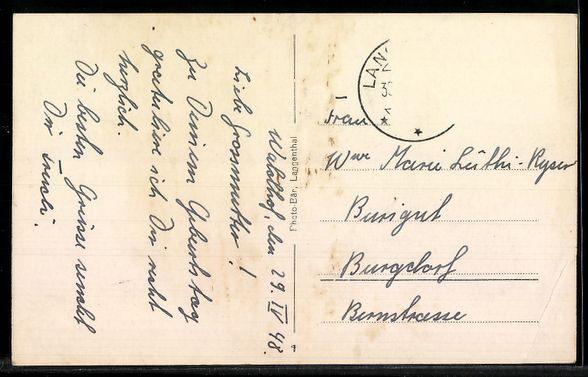 Waldhof, den 29. IV 48.
Liebe Grossmutter!
Zu Deinem Geburtstag
gratuliere ich Dir recht
herzlich.
Die besten Grüsse sendet
Dir
Photo-Bär, Langenthal
LAN
Frau
Wwe Marie Lüthi-Ryser
Burgdorf
Bernstrasse